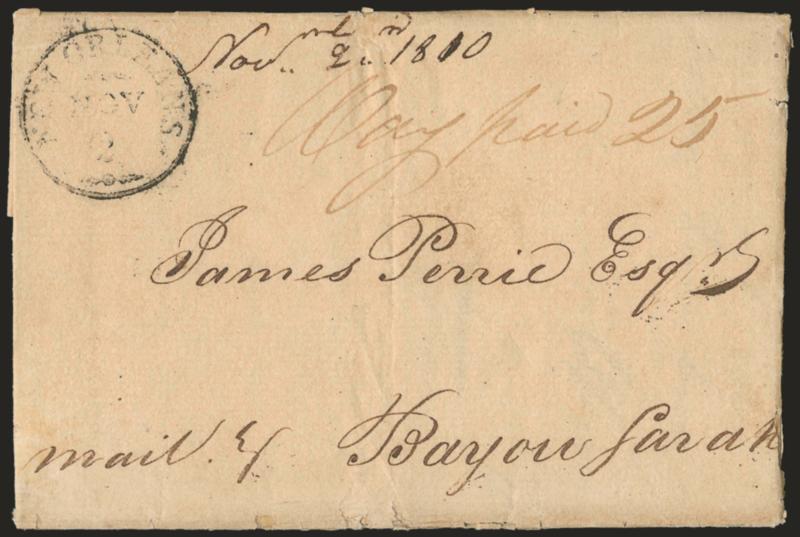 NEW ORLEANS
NOV
2
Novmbr 2nd 1810
Way paid 25
James Perrie Esqr
mail
Bayou Sarah